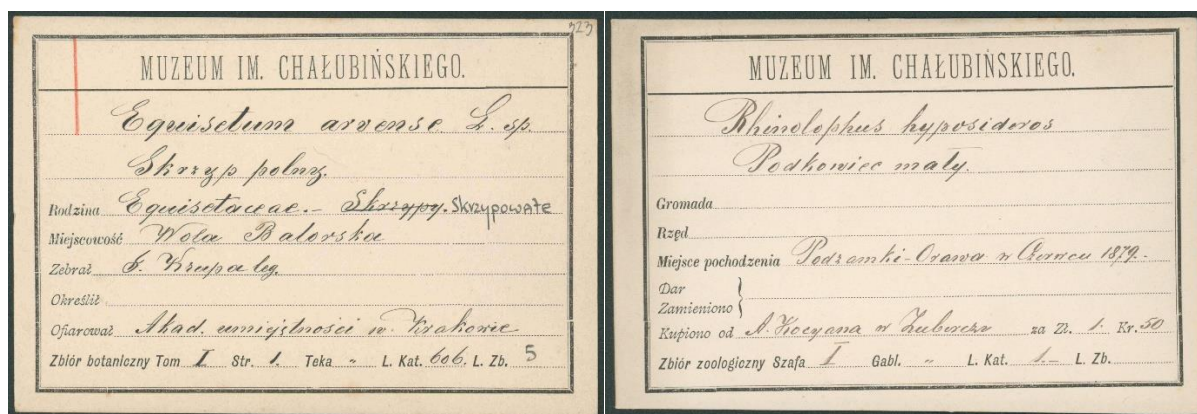 323
MUZEUM IM. CHAŁUBIŃSKIEGO.
Equisetum arvense L. sp.
Skrzyp polny.
Rodzina Equisetaceae. – Skrzypy. SKRZYPOWATE
Miejscowość Wola Batorska
Zebrał F. Krupa leg.
Określił
Ofiarował Akad. umiejętności w Krakowie
Zbiór botaniczny Tom I Str. 1. Teka „ L. Kat. 606. L. Zb. 5
MUZEUM IM. CHAŁUBIŃSKIEGO.
Rhinolophus hyposideros
Podkowiec mały.
Gromada
Rzęd
Miejsce pochodzenia Podzamki - Orawa w Czerwcu 1879. -
Dar
Zamieniono }
Kupiono od A. Kocyana w Zubercu za Zł. 1. Kr. 50
Zbiór zoologiczny Szafa I Gabl. „ L. Kat. 1. – L. Zb.